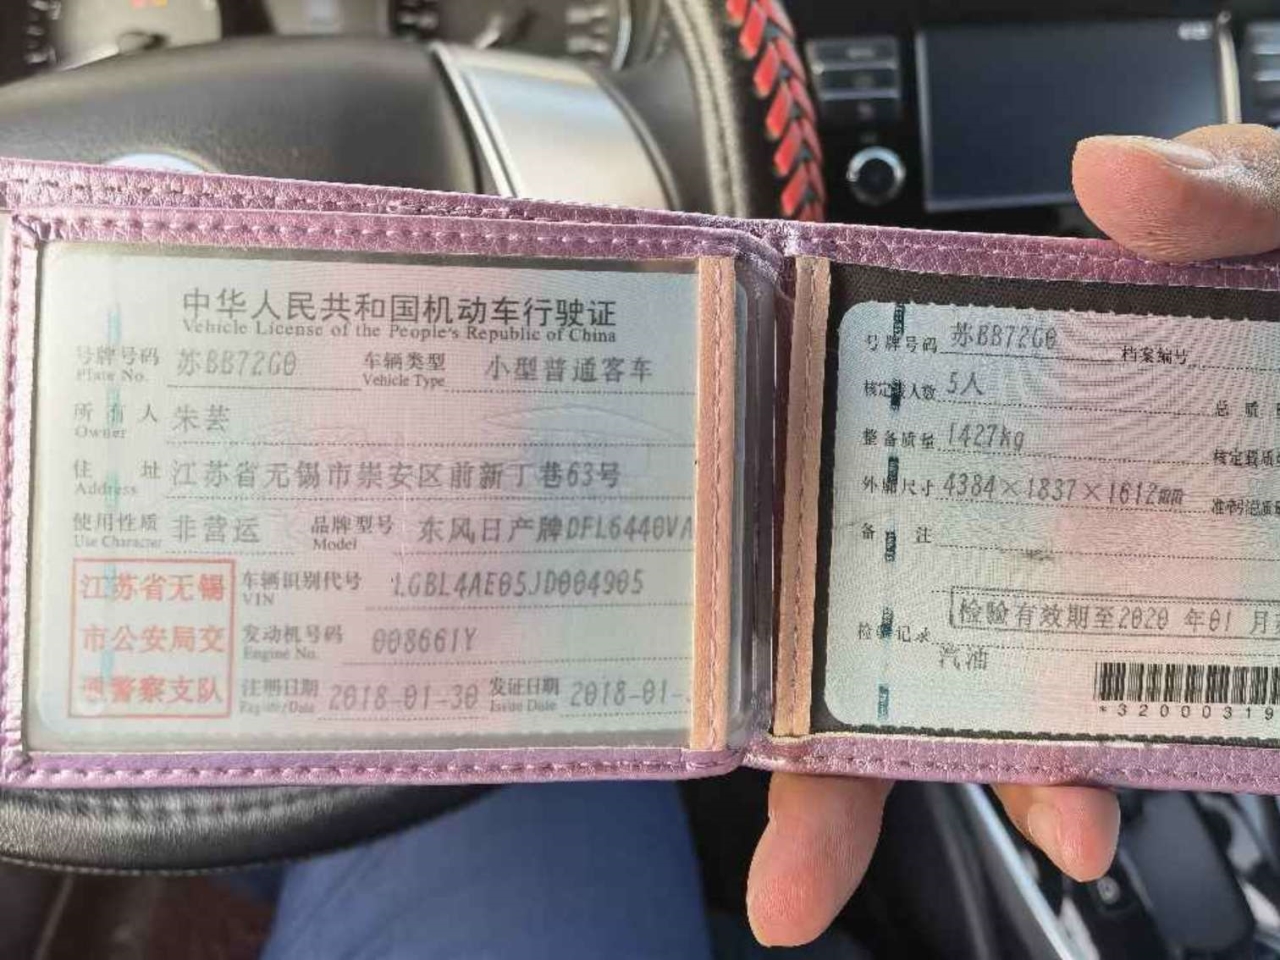 中华人民共和国机动车行驶证
Vehicle License of the People's Republic of China
号牌号码 苏BB72G0 车辆类型 小型普通客车
Plate No. Vehicle Type
所有人 朱芸
Owner
住址 江苏省无锡市崇安区前新丁巷63号
Address
使用性质 非营运 品牌型号 东风日产牌DFL6440VA
Use Character Model
江苏省无锡
市公安局交
通警察支队
车辆识别代号 LGBL4AE05JD004905
VIN
发动机号码 008661Y
Engine No.
注册日期 2018-01-30 发证日期 2018-01-
Register Date Issue Date
号牌号码 苏BB72G0 档案编号
核定载人数 5人 总质
整备质量 1427kg 核定载质
外廓尺寸 4384×1837×1612mm 准牵引总质
备注
检验有效期至2020年01月
检验记录
汽油
*32000319